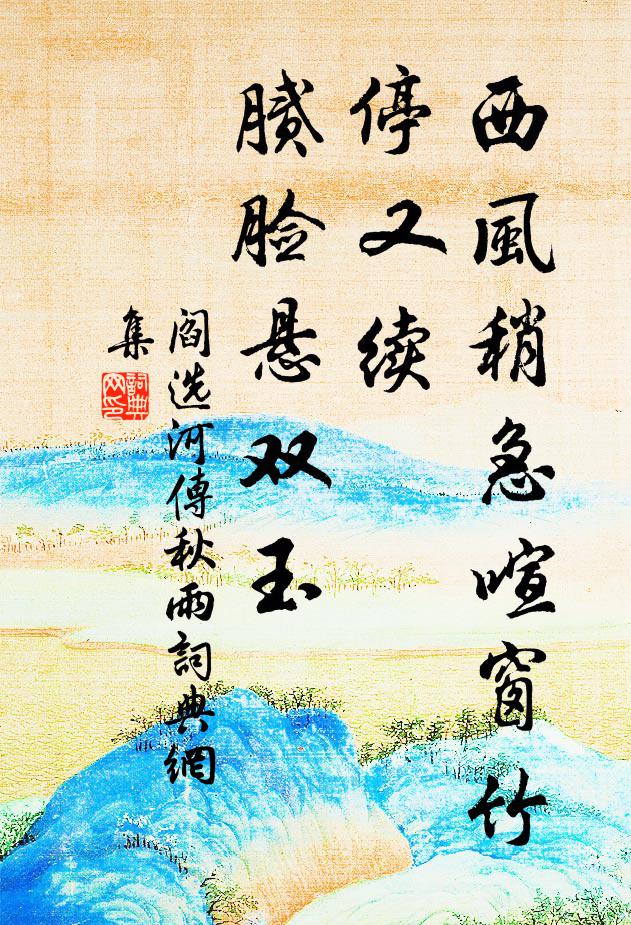 西風稍急喧窗竹
停又续
腻脸悬双玉
阎选河傳秋雨詞典網
集
詞典
网印